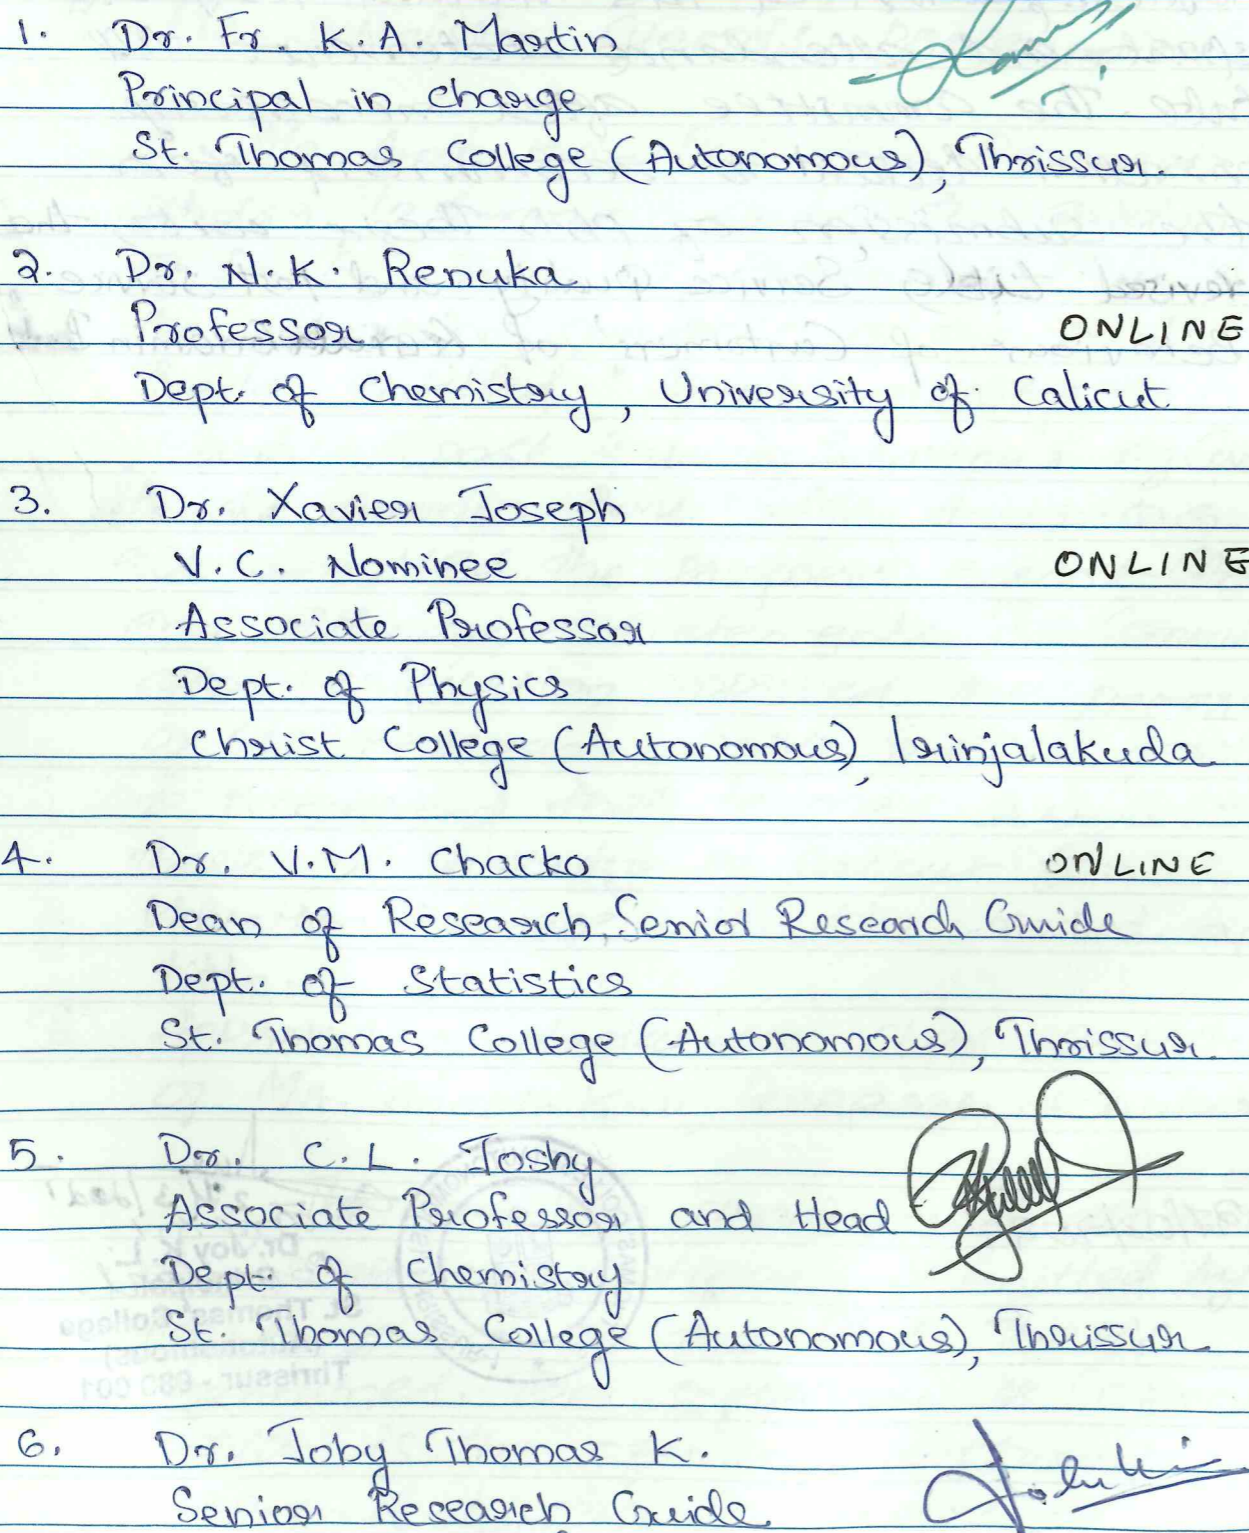 1. Dr. Fr. K.A. Martin
Principal in charge
St. Thomas College (Autonomous), Thrissur.
2. Dr. N.K. Renuka
Professor ONLINE
Dept. of Chemistry, University of Calicut
3. Dr. Xavier Joseph
V.C. Nominee ONLINE
Associate Professor
Dept. of Physics
Christ College (Autonomous), Irinjalakuda
4. Dr. V.M. Chacko ONLINE
Dean of Research, Senior Research Guide
Dept. of Statistics
St. Thomas College (Autonomous), Thrissur.
5. Dr. C.L. Joshy
Associate Professor and Head
Dept. of Chemistry
St. Thomas College (Autonomous), Thrissur
6. Dr. Joby Thomas K.
Senior Research Guide